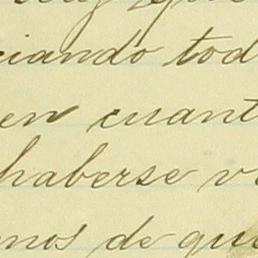 ciando tod
en cuant
haberse v
nos de que